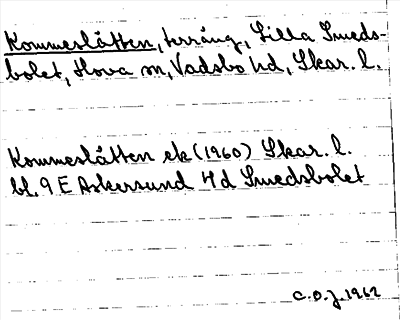 Kommeslätten, terräng, Lilla Smeds-
bolet, Hova sn, Vadsbo hd, Skar. l.
Kommeslätten ek (1960) Skar. l.
bl. 9 E Askersund 7d Smedsbolet
C.O.J. 1962